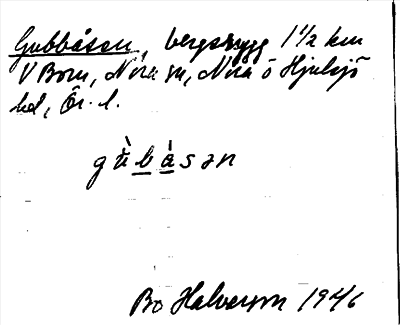 Gubbåsen, bergsrygg 1 1/2 km
V Born, Nora sn, Nora o Hjulsjö
hd, Ör. l.
gu̇̀bȧ́sən
Bo Halvarson 1946